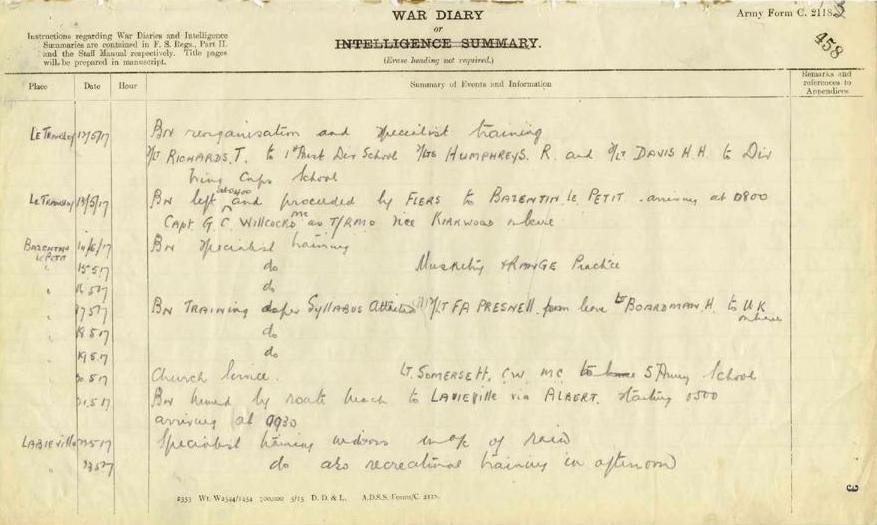 WAR DIARY
or
INTELLIGENCE SUMMARY.
(Erase heading not required.)
Army Form C. 2118.
458
Instructions regarding War Diaries and Intelligence
Summaries are contained in F. S. Regs., Part II.
and the Staff Manual respectively. Title pages
will be prepared in manuscript.
Place Date Hour Summary of Events and Information Remarks and references to Appendices
LE TRANSLOY 12/5/17 BN reorganisation and specialist training
2/Lt RICHARDS. T. to 1st Aust Div School 2/Lts HUMPHREYS. R. and 2/LT DAVIS H. H. to Div
Corps School
LE TRANSLOY 13/5/17 BN left at 0400 and proceeded by FLERS to BAZENTIN LE PETIT arriving at 0800
Capt G C WILLCOCKS MC as T/RMO vice KIRKWOOD on leave
BAZENTIN LE PETIT 14/5/17 BN Specialist training
" 15 5 17 do Musketry & RANGE Practice
" 16 5 17 do
" 17 5 17 BN TRAINING as per SYLLABUS Attached 2/LT FA PRESNELL from leave Lt BOARDMAN. H. to UK on leave
" 18 5 17 do
" 19 5 17 do
" 20 5 17 Church Service. LT. SOMERSETT. C.W. MC to 5 Army School
" 21 5 17 BN moved by route march to LAVIEVILLE via ALBERT. starting 0500
arriving at 0930
LABIEVILLE 22 5 17 Specialist training indoors in of rain
" 23 5 17 do also recreational training in afternoon
2353 Wt. W2544/1454 700,000 5/15 D. D. & L. A.D.S.S. Forms/C. 2118.
3